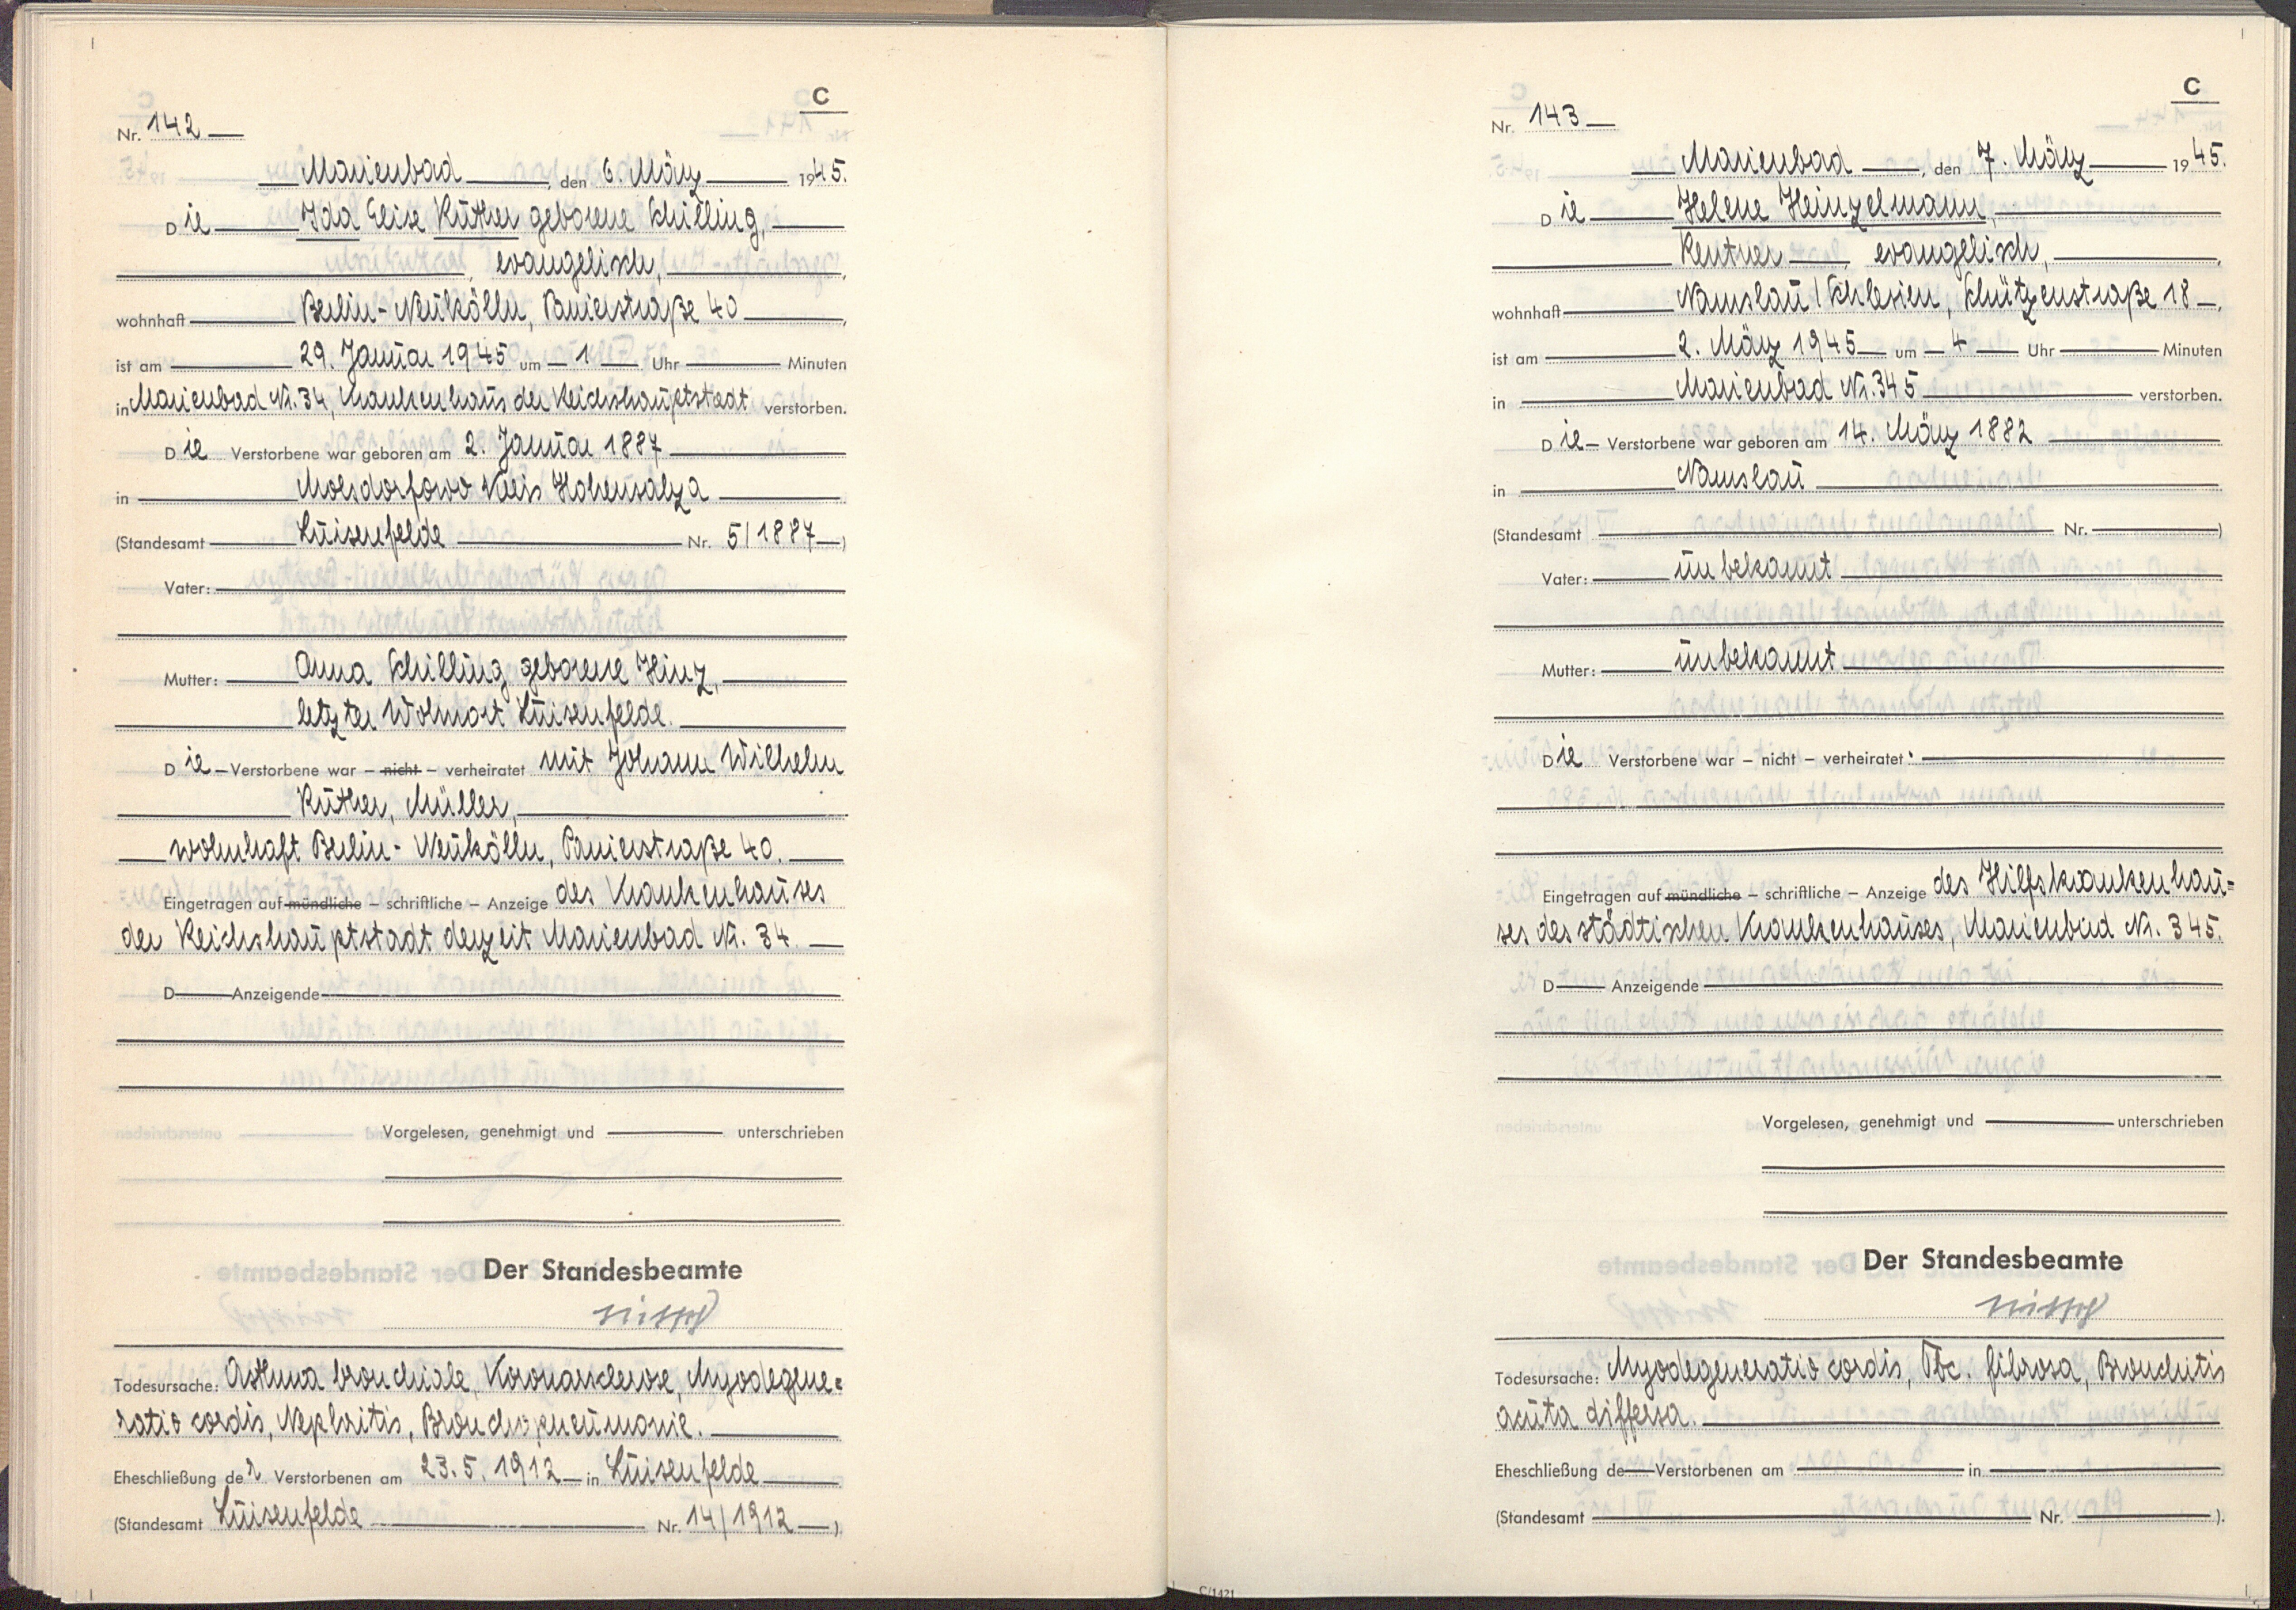 C
Nr. 142
Marienbad, den 6. März 1945.
Die Ida Elise Rüther geborene Schilling,
, evangelisch,
wohnhaft Berlin-Neukölln, Panierstraße 40,
ist am 29. Januar 1945 um 1 Uhr Minuten
in Marienbad Nr. 34, Krankenhaus der Reichshauptstadt verstorben.
Die Verstorbene war geboren am 2. Januar 1887
in Molsdorfowo Kreis Hohensalza
(Standesamt Luisenfelde Nr. 5/1887)
Vater:
Mutter: Anna Schilling geborene Hinz,
letzter Wohnort Luisenfelde.
Die Verstorbene war – nicht – verheiratet mit Johann Wilhelm
Rüther, Müller,
wohnhaft Berlin-Neukölln, Panierstraße 40.
Eingetragen auf mündliche – schriftliche – Anzeige des Krankenhauses
der Reichshauptstadt derzeit Marienbad Nr. 34.
D Anzeigende
Vorgelesen, genehmigt und unterschrieben
Der Standesbeamte
Todesursache: Asthma bronchiale, Koronarsklerose, Myodegene=
ratio cordis, Nephritis, Bronchopneumonie.
Eheschließung der Verstorbenen am 23.5.1912 in Luisenfelde
(Standesamt Luisenfelde Nr. 14/1912).
C
Nr. 143
Marienbad, den 7. März 1945.
Die Helene Heinzelmann,
Rentner, evangelisch,
wohnhaft Namslau/Schlesien, Schützenstraße 18,
ist am 2. März 1945 um 4 Uhr Minuten
in Marienbad Nr. 345 verstorben.
Die Verstorbene war geboren am 14. März 1882
in Namslau
(Standesamt Nr. )
Vater: unbekannt
Mutter: unbekannt
Die Verstorbene war – nicht – verheiratet.
Eingetragen auf mündliche – schriftliche – Anzeige des Hilfskrankenhau=
ses des städtischen Krankenhauses, Marienbad Nr. 345.
D Anzeigende
Vorgelesen, genehmigt und unterschrieben
Der Standesbeamte
Todesursache: Myodegeneratio cordis, Tbc. fibrosa, Bronchitis
acuta diffusa.
Eheschließung de Verstorbenen am in
(Standesamt Nr. ).
C/1421